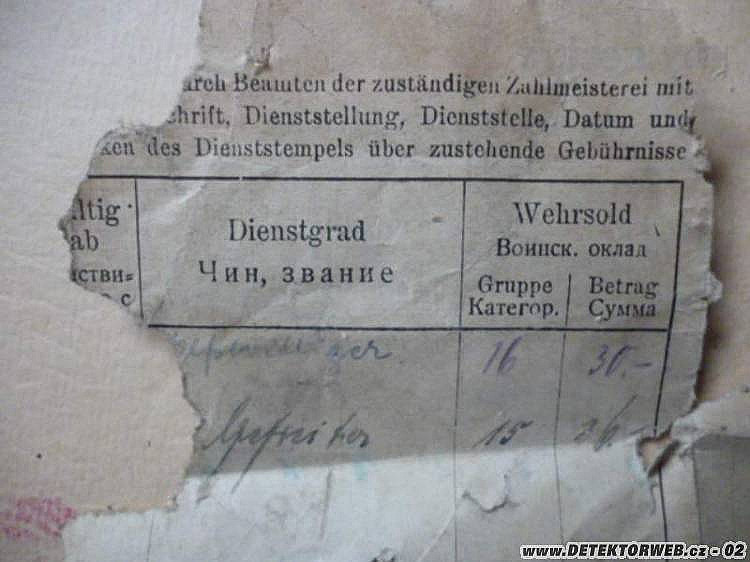 arch Beamten der zuständigen Zahlmeisterei mit
chrift, Dienststellung, Dienststelle, Datum und
ken des Dienststempels über zustehende Gebührnisse
ltig
ab
стви=
с
Dienstgrad
Чин, звание
Wehrsold
Воинск. оклад
Gruppe
Категор.
Betrag
Сумма
16 30.-
Gefreiter 15
www.DETEKTORWEB.cz - 02